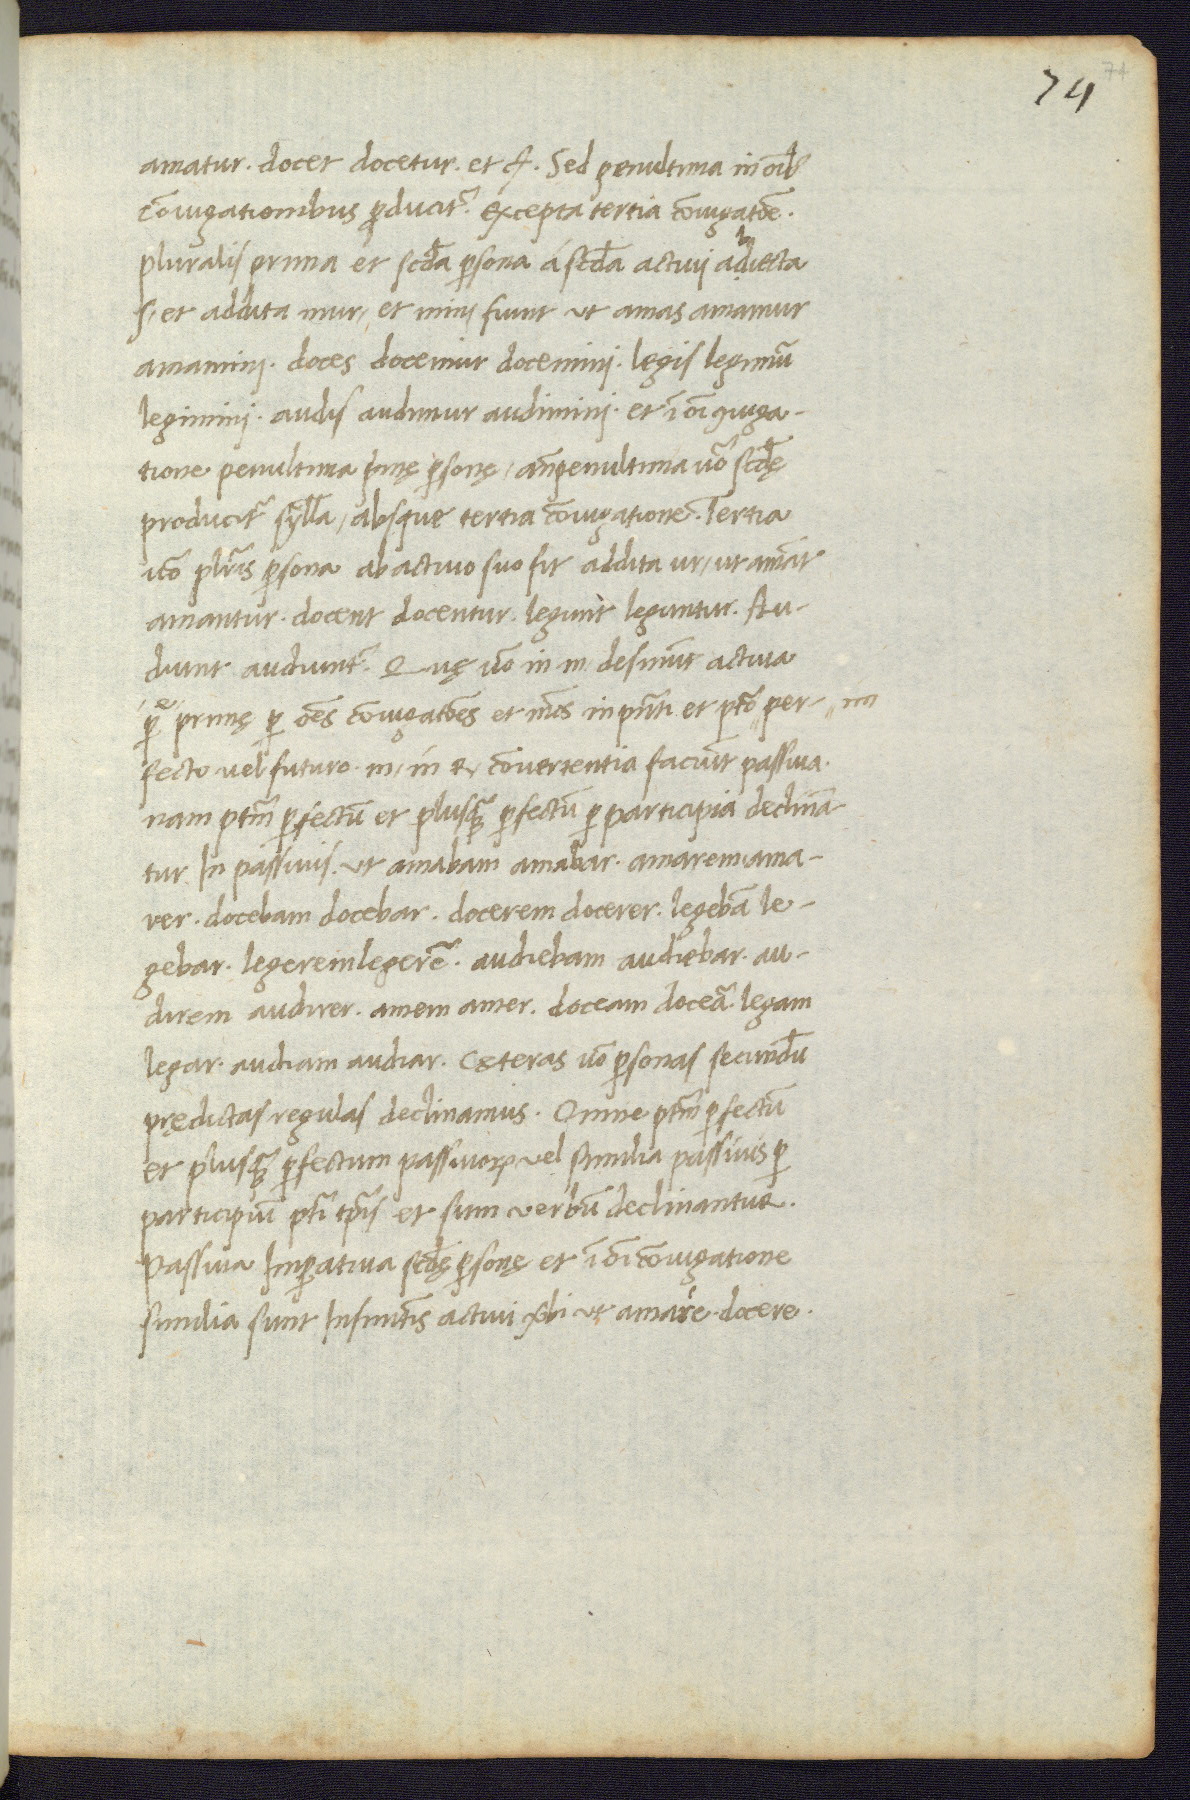 74 74
amatur. docet docetur. et c̄. Sed penultima in oīb
cōiugationibus producit᷑. excepta tertia cōiugatōe.
pluralis prima et scd̄a ꝑsona á scd̄a actiui abiecta
s, et addita mur, et mini, fiunt ut amas amamur
amamini. doces docemur docemini. legis legimur
legimini. audis audimur audimini. et ī oī ꝯiuga-
tione penultima p̄mę ꝑsonę, an̄penultima uō scd̄ę
producit᷑ syll̄a, absque tertia cōiugatione. Tertia
uō plr̄is ꝑsona ab actiuo suo fit addita ur, ut amāt
amantur. docent docentur. legunt leguntur. Au-
diunt audiunt᷑. Quę uō in m desinūt actiua
ꝑsonę primę ꝑ oēs cōiugatōes et m̄os in pn̄ti et pt̄o per- im
fecto uel futuro. m, in r, cōuertentia faciūt passiua.
nam pt̄m ꝑfectū et plusq̄ ꝑfectū ꝑ participia declinā
tur In passiuis. ut amabam amabar. amarem ama-
rer. docebam docebar. docerem docerer. legebā le-
gebar. legerem legerer̄. audiebam audiebar. au-
direm audirer. amem amer. doceam doceār. legam
legar. audiam audiar. Cęteras uō ꝑsonas secundū
prędictas regulas declinamus. Omne pt̄m ꝑfectū
et plusq̄ ꝑfectum passiuoꝝ uel similia passiuis ꝑ
participiū pt̄i tp̄is et sum verbū declinantur.
Passiua Imꝑatiua scd̄ę ꝑsonę et ī oī cōiugatione
similia sunt Infinitis actiui ūbi ut amare. docere.